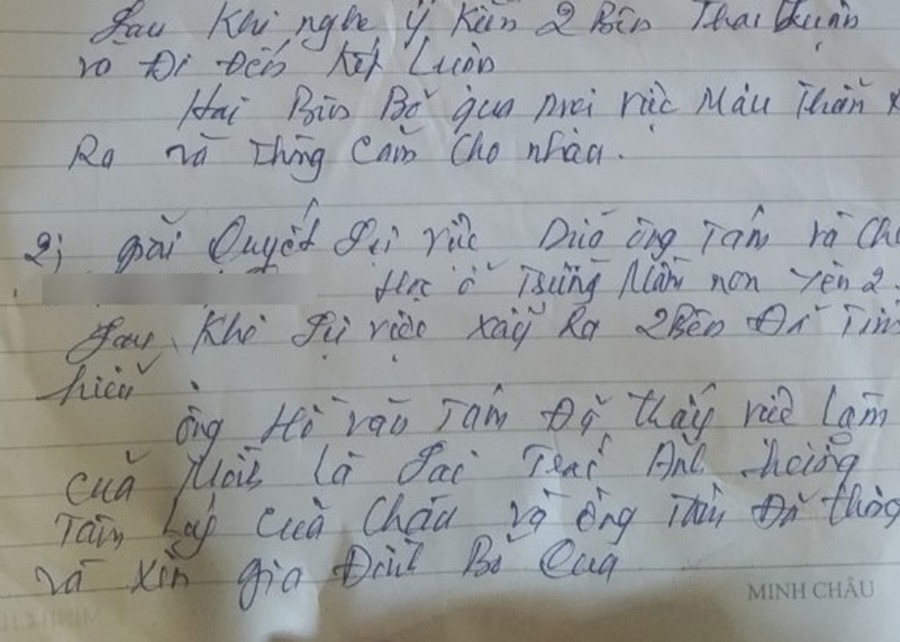 Sau Khi nghe ý Kiến 2 Bên Thai Quận
và Đi Đến Kết Luận
Hai Bên Bỏ qua mọi việc Mâu Thẫn x
Ra và Thông Cảm Cho nhau.
2; giải Quyết Sự việc Giữa ông Tâm và Ch
Học ở Trường Mầm non Yên 2.
Sau Khi Sự việc xảy Ra 2 Bên Đã Tìm
hiểu
ông Hồ văn Tâm Đã thấy việc Làm
của Mình Là Sai Trái Ảnh hưởng
Tâm Lý của Cháu và ông Tâm Đã thông
và xin gia Đình Bỏ Qua
MINH CHÂU